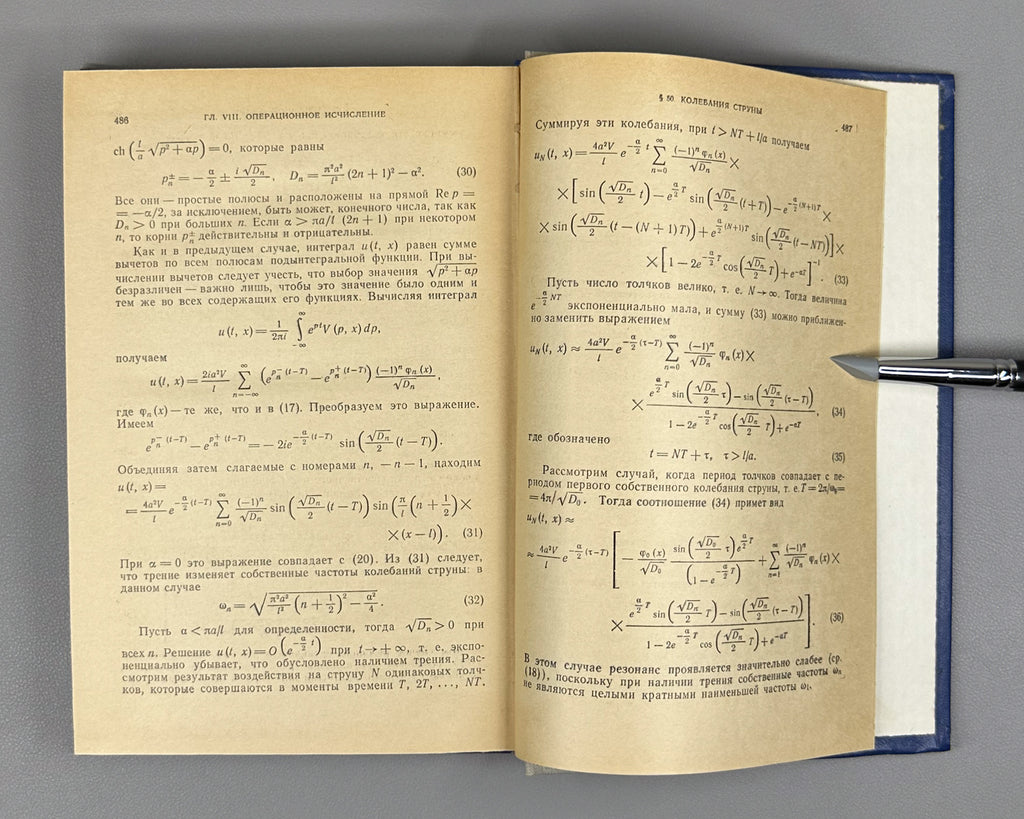 486
ГЛ. VIII. ОПЕРАЦИОННОЕ ИСЧИСЛЕНИЕ
ch (l/a √(p² + αp)) = 0, которые равны
pₙ± = − α/2 ± i√Dₙ/2, Dₙ = π²a²/l² (2n + 1)² − α². (30)
Все они — простые полюсы и расположены на прямой Re p =
= −α/2, за исключением, быть может, конечного числа, так как
Dₙ > 0 при больших n. Если α > πa/l (2n + 1) при некотором
n, то корни pₙ± действительны и отрицательны.
Как и в предыдущем случае, интеграл u(t, x) равен сумме
вычетов по всем полюсам подынтегральной функции. При вы-
числении вычетов следует учесть, что выбор значения √(p² + αp)
безразличен — важно лишь, чтобы это значение было одним и
тем же во всех содержащих его функциях. Вычисляя интеграл
u(t, x) = 1/2πi ∫_{−∞}^{∞} e^{pt} V (p, x) dp,
получаем
u(t, x) = 2ia²V/l ∑_{n=−∞}^{∞} (e^{pₙ⁻ (t−T)} − e^{pₙ⁺ (t−T)}) (−1)ⁿ φₙ(x)/√Dₙ,
где φₙ(x) — те же, что и в (17). Преобразуем это выражение.
Имеем
e^{pₙ⁻ (t−T)} − e^{pₙ⁺ (t−T)} = − 2ie^{−α/2 (t−T)} sin (√Dₙ/2 (t − T)).
Объединяя затем слагаемые с номерами n, − n − 1, находим
u(t, x) =
= 4a²V/l e^{−α/2 (t−T)} ∑_{n=0}^{∞} (−1)ⁿ/√Dₙ sin (√Dₙ/2 (t − T)) sin (π/l (n + 1/2) ×
× (x − l)). (31)
При α = 0 это выражение совпадает с (20). Из (31) следует,
что трение изменяет собственные частоты колебаний струны: в
данном случае
ωₙ = √(π²a²/l² (n + 1/2)² − α²/4). (32)
Пусть α < πa/l для определенности, тогда √Dₙ > 0 при
всех n. Решение u(t, x) = O (e^{−α/2 t}) при t → + ∞, т. е. экспо-
ненциально убывает, что обусловлено наличием трения. Рас-
смотрим результат воздействия на струну N одинаковых толч-
ков, которые совершаются в моменты времени T, 2T, ..., NT.
§ 50. КОЛЕБАНИЯ СТРУНЫ
487
Суммируя эти колебания, при t > NT + l/a получаем
u_N(t, x) = 4a²V/l e^{−α/2 t} ∑_{n=0}^{∞} (−1)ⁿ φₙ(x)/√Dₙ ×
× [sin (√Dₙ/2 t) − e^{α/2 T} sin (√Dₙ/2 (t + T)) − e^{−α/2 (N+1)T} ×
× sin (√Dₙ/2 (t − (N + 1) T)) + e^{α/2 (N+1)T} sin (√Dₙ/2 (t − NT))] ×
× [1 − 2e^{−α/2 T} cos (√Dₙ/2 T) + e^{−αT}]⁻¹. (33)
Пусть число толчков велико, т. е. N → ∞. Тогда величина
e^{−α/2 NT} экспоненциально мала, и сумму (33) можно приближен-
но заменить выражением
u_N(t, x) ≈ 4a²V/l e^{−α/2 (τ−T)} ∑_{n=0}^{∞} (−1)ⁿ/√Dₙ φₙ(x) ×
× (e^{α/2 T} sin (√Dₙ/2 τ) − sin (√Dₙ/2 (τ − T)))/(1 − 2e^{−α/2 T} cos (√Dₙ/2 T) + e^{−αT}), (34)
где обозначено
t = NT + τ, τ > l/a. (35)
Рассмотрим случай, когда период толчков совпадает с пе-
риодом первого собственного колебания струны, т. е. T = 2π/ω₀ =
= 4π/√D₀. Тогда соотношение (34) примет вид
u_N(t, x) ≈
≈ 4a²V/l e^{−α/2 (τ−T)} [− φ₀(x)/√D₀ sin (√D₀/2 τ) e^{α/2 T}/(1 − e^{−α/2 T}) + ∑_{n=1}^{∞} (−1)ⁿ/√Dₙ φₙ(x) ×
× (e^{α/2 T} sin (√Dₙ/2 T) − sin (√Dₙ/2 (τ − T)))/(1 − 2e^{−α/2 T} cos (√Dₙ/2 T) + e^{−αT})]. (36)
В этом случае резонанс проявляется значительно слабее (ср.
(18)), поскольку при наличии трения собственные частоты ωₙ
не являются целыми кратными наименьшей частоты ω₁.